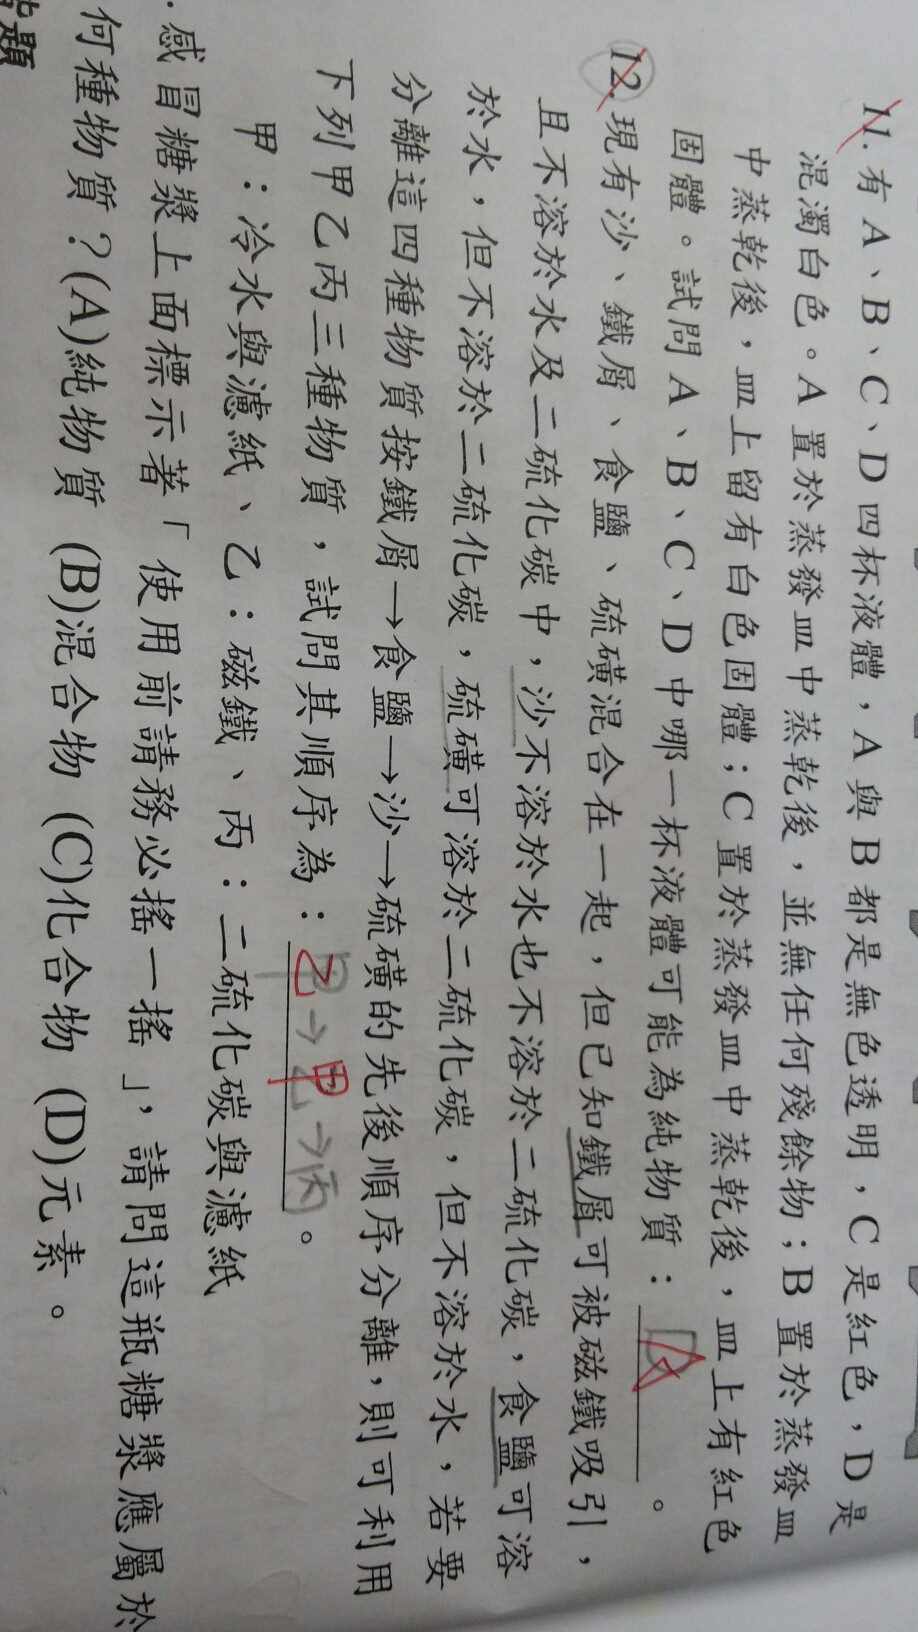 11.有A、B、C、D四杯液體,A與B都是無色透明,C是紅色,D是
混濁白色。A置於蒸發皿中蒸乾後,並無任何殘餘物;B置於蒸發皿
中蒸乾後,皿上留有白色固體;C置於蒸發皿中蒸乾後,皿上有紅色
固體。試問A、B、C、D中哪一杯液體可能為純物質:A。
12.現有沙、鐵屑、食鹽、硫磺混合在一起,但已知鐵屑可被磁鐵吸引,
且不溶於水及二硫化碳中,沙不溶於水也不溶於二硫化碳,食鹽可溶
於水,但不溶於二硫化碳,硫磺可溶於二硫化碳,但不溶於水,若要
分離這四種物質按鐵屑→食鹽→沙→硫磺的先後順序分離,則可利用
下列甲乙丙三種物質,試問其順序為:乙→甲→丙。
甲:冷水與濾紙、乙:磁鐵、丙:二硫化碳與濾紙
.感冒糖漿上面標示著「使用前請務必搖一搖」,請問這瓶糖漿應屬於
何種物質?(A)純物質 (B)混合物 (C)化合物 (D)元素。
題